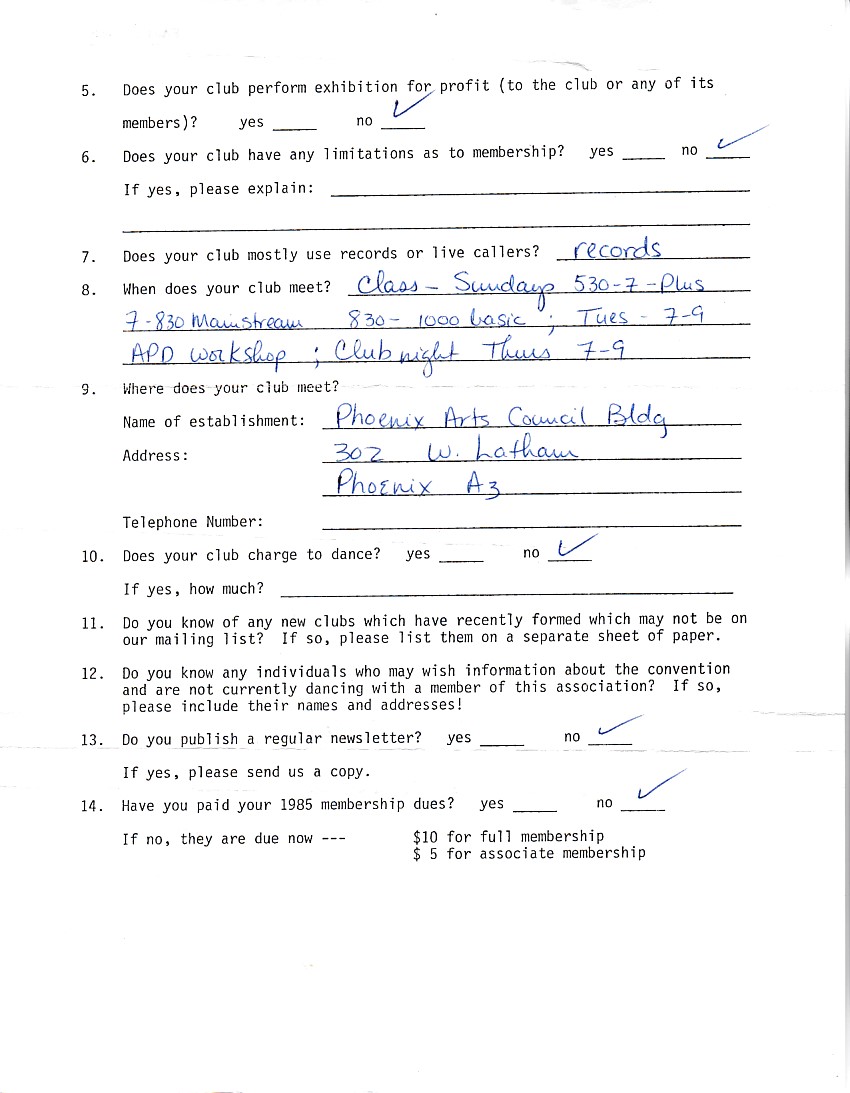 5. Does your club perform exhibition for profit (to the club or any of its
members)? yes _____ no ✓
6. Does your club have any limitations as to membership? yes _____ no ✓
If yes, please explain:
7. Does your club mostly use records or live callers? records
8. When does your club meet? Class - Sundays 530-7 - Plus
7-830 Mainstream 830 - 1000 basic ; Tues - 7-9
APD workshop ; Club night Thurs 7-9
9. Where does your club meet?
Name of establishment: Phoenix Arts Council Bldg
Address: 302 W. Latham
Phoenix Az
Telephone Number:
10. Does your club charge to dance? yes _____ no ✓
If yes, how much?
11. Do you know of any new clubs which have recently formed which may not be on
our mailing list? If so, please list them on a separate sheet of paper.
12. Do you know any individuals who may wish information about the convention
and are not currently dancing with a member of this association? If so,
please include their names and addresses!
13. Do you publish a regular newsletter? yes _____ no ✓
If yes, please send us a copy.
14. Have you paid your 1985 membership dues? yes _____ no ✓
If no, they are due now --- $10 for full membership
$ 5 for associate membership